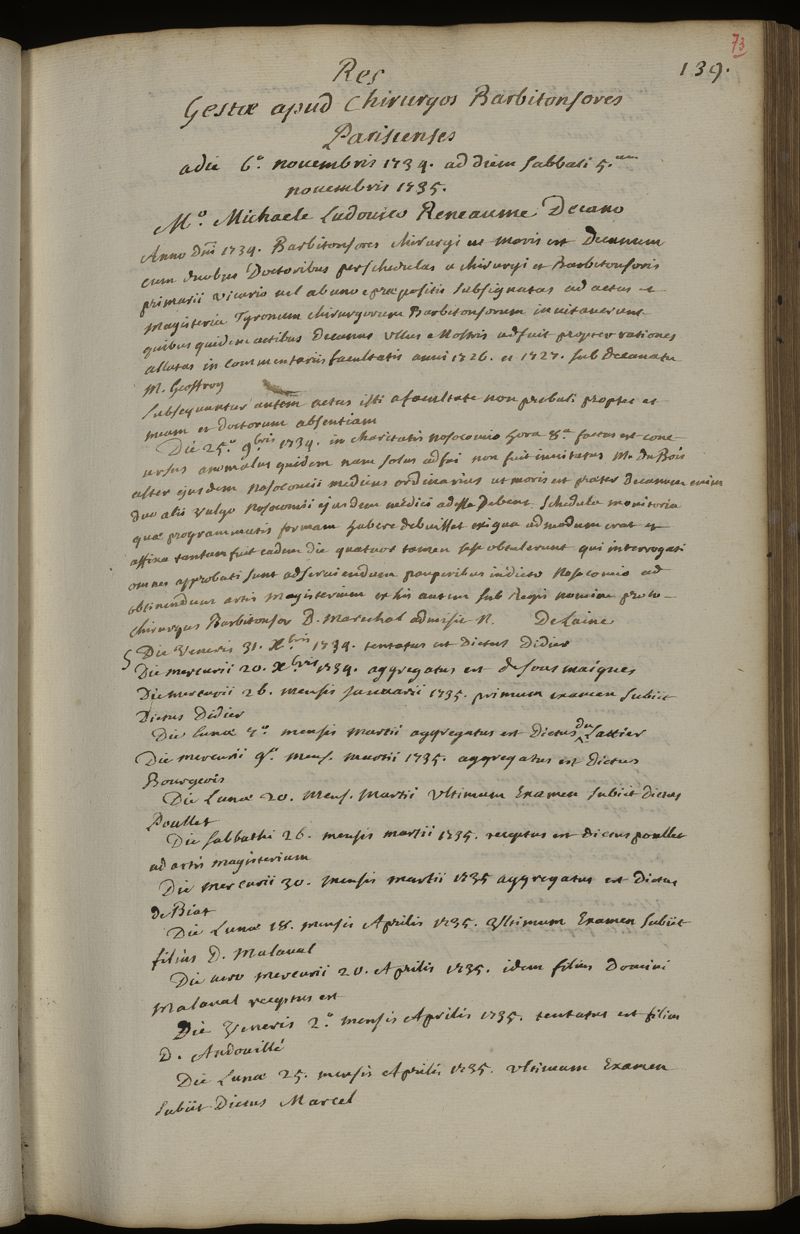 73
139.
Res
Gestæ apud Chirurgos Barbitonsores
Parisienses
a die 6.° novembris 1734. ad diem sabbati 5.um
novembris 1735.
M.° Michaele Ludovico Reneaume Decano
Anno Dni 1734. Barbitonsores chirurgi ut moris est Decanum
cum duobus Doctoribus per schedulas a chirurgi et Barbitonsoris
primarii vicario vel ab uno e præpositis subsignatas ad actus et
magisteria Tyronum chirurgorum Barbitonsorum invitaverunt
quibus quidem actibus Decanus Ullus e Nostris adfuit propter rationes
allatas in commentariis facultatis anni 1726. et 1727. sub decanatu
M. Geoffroy
Subsequuntur autem actus isti a facultate non probati propter et
meam et doctorum absentiam
Die 25.° 9.bris 1734. in charitatis nosocomio hora 8.a factus est conc
ursus anomalus quidem nam solus adfui non fuit invitatus M. Du Bois
alter ejusdem Nosocomii medicus ordinarius ut moris est præter decanum enim
duo alii vulgo Nosocomii ejusdem medici adesse debent schedula monitoria
quæ programmatis formam habere debuisset exigua admodum erat et
affixa tantum fuit eadem die quatuor tamen sese obtulerunt qui interrogati
omnes approbati sunt ad serviendum pauperibus in dicto Nosocomio ad
obtinendum artis magisterium ex his autem sub Regis nomine proto-
chirurgus Barbitonsor D. Marechal admisit N. Delaine
5 Die Veneris 31. X.bris 1734. tentatus est dictus Didier
Die mercurii 20. X.bris 1734. aggregatus est de sous maignes
Die mercurii 26. mensis Januarii 1735. primum examen subiit
Dictus Didier
Die lunæ 7.° mensis martii aggregatus est dictus du Lattier
Die mercurii 9.° mens. martii 1735. aggregatus est dictus
Bourgeois
Die Lunæ 20. Mens. Martii Ultimum Examen subiit dictus
Poullet
Die sabbathi 26. mensis martii 1735. receptus est dictus poullet
ad artis magisterium
Die mercurii 30. mensis martii 1735 aggregatus est dictus
de Biat
Die Lunæ 18. mensis Aprilis 1735. Ultimum Examen subiit
filius D. Malaval
Die vero mercurii 20. Aprilis 1735. idem filius Domini
Malaval receptus est
Die Veneris 2.° mensis Aprilis 1735. tentatus est filius
D. Andouillé
Die Lunæ 25. mensis Aprilis 1735. Ultimum Examen
subiit Dictus Marcel